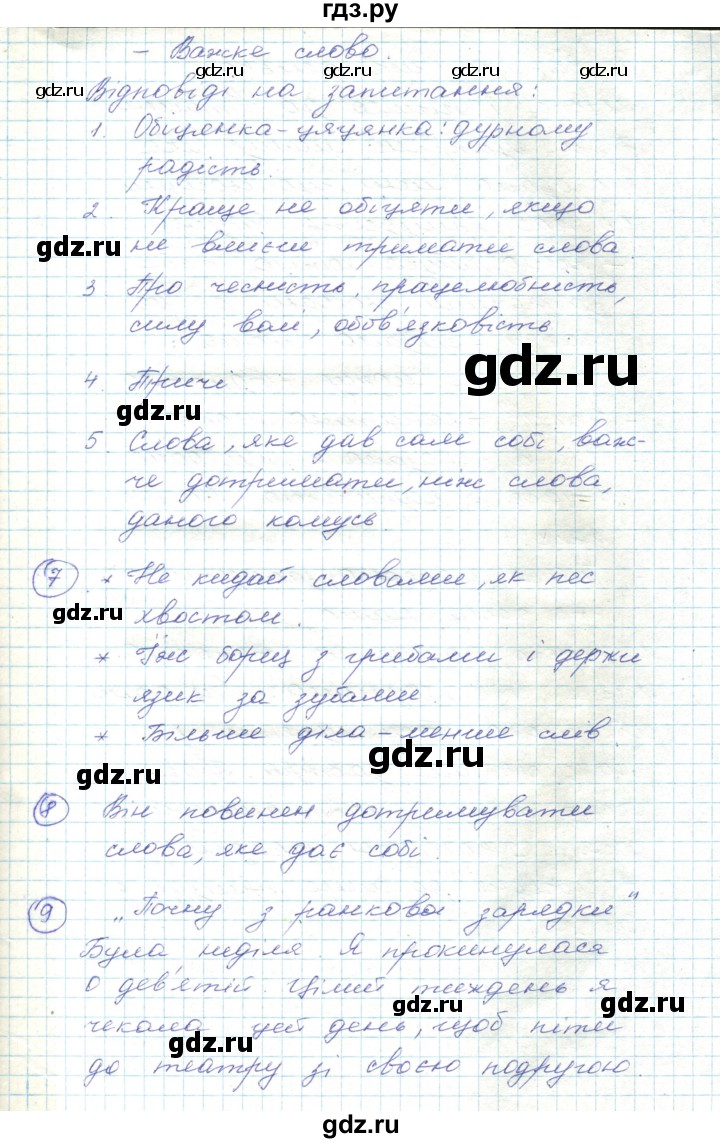 гдз.ру
- Важке слово.
gdz.ru gdz.ru gdz.ru
Відповіді на запитання:
1. Обіцянка-цяцянка: дурному
радість.
2 Краще не обіцяти, якщо
gdz.ru
не вмієш тримати слова.
3 Про чесність, працелюбність,
силу волі, обов'язковість
gdz.ru
4. Притчі.
gdz.ru
5. Слова, яке дав сам собі, важ-
че дотримати, ніж слова,
даного комусь.
7 * Не кидай словами, як пес
gdz.ru
хвостом.
* Їж борщ з грибами і держи
язик за зубами.
* Більше діла - менше слів
gdz.ru
gdz.ru
8 Він повинен дотримувати
слова, яке дає собі.
9 „Почну з ранкової зарядки"
Була неділя. Я прокинулася
о дев'ятій. Цілий тиждень я
gdz.ru
чекала цей день, щоб піти
gdz.ru
до театру зі своєю подругою.
gdz.ru
gdz.ru